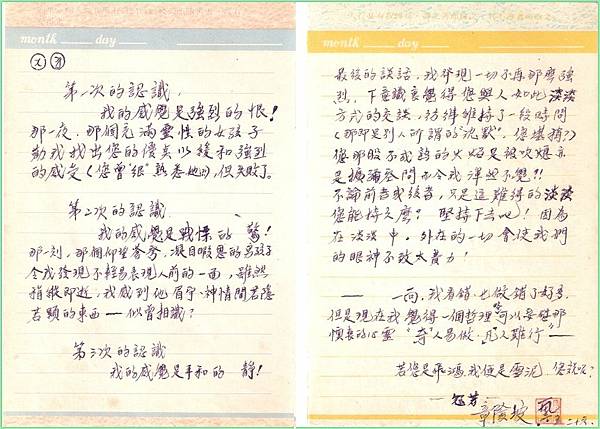 month ___ day ___
第一次的認識
我的感覺是強烈的恨!
那一夜,那個充滿靈性的女孩子
勸我找出您的優点以緩和強烈
的感受(您曾"很"熟悉他的),但失敗了。
第二次的認識
我的感覺是戰慄的 驚!
那一刻,那個仰望蒼穹,凝目暇思的男孩子
令我發現不輕易表現人前的一面,雖然
稍縱即逝,我感到他眉宇、神情間若隱
若顯的東西—似曾相識?
第三次的認識
我的感覺是平和的 靜!
month ___ day ___
最後的談話,我發現一切不再那麼強
烈,下意識裏覺得您與人如此淡淡
方式的交談,彷彿維持了一段時間
(那即是別人所謂的"沈默",您堪稍?)
您那股不成熟的火焰是被吹熄亦
是擴論發問而令我渾然不覺!!
不論前者或後者,只是這難得的淡淡
您能持久麼?堅持下去吧!因為
在淡淡中,外在的一切會使我們
的眼神不致太費力!
— 一向,我看錯、也做錯了好多,
但是現在我覺得一個哲理可以安慰那
懊喪的心靈"奇"人易做,凡人難行—
若您是飛鴻,我便是雪泥,您說呢?
章陵坡
五.二十六.